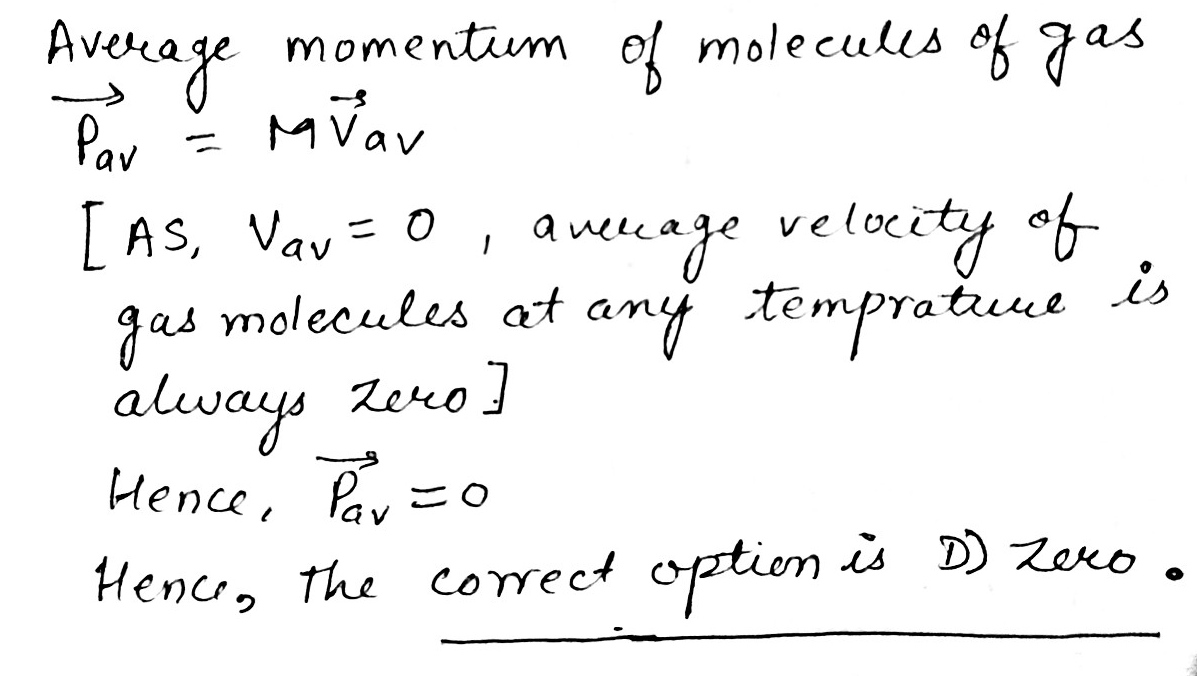 Average momentum of molecules of gas
P⃗av = MV⃗av
[AS, Vav = 0 , average velocity of
gas molecules at any temprature is
always zero]
Hence, P⃗av = 0
Hence, the correct option is D) Zero.